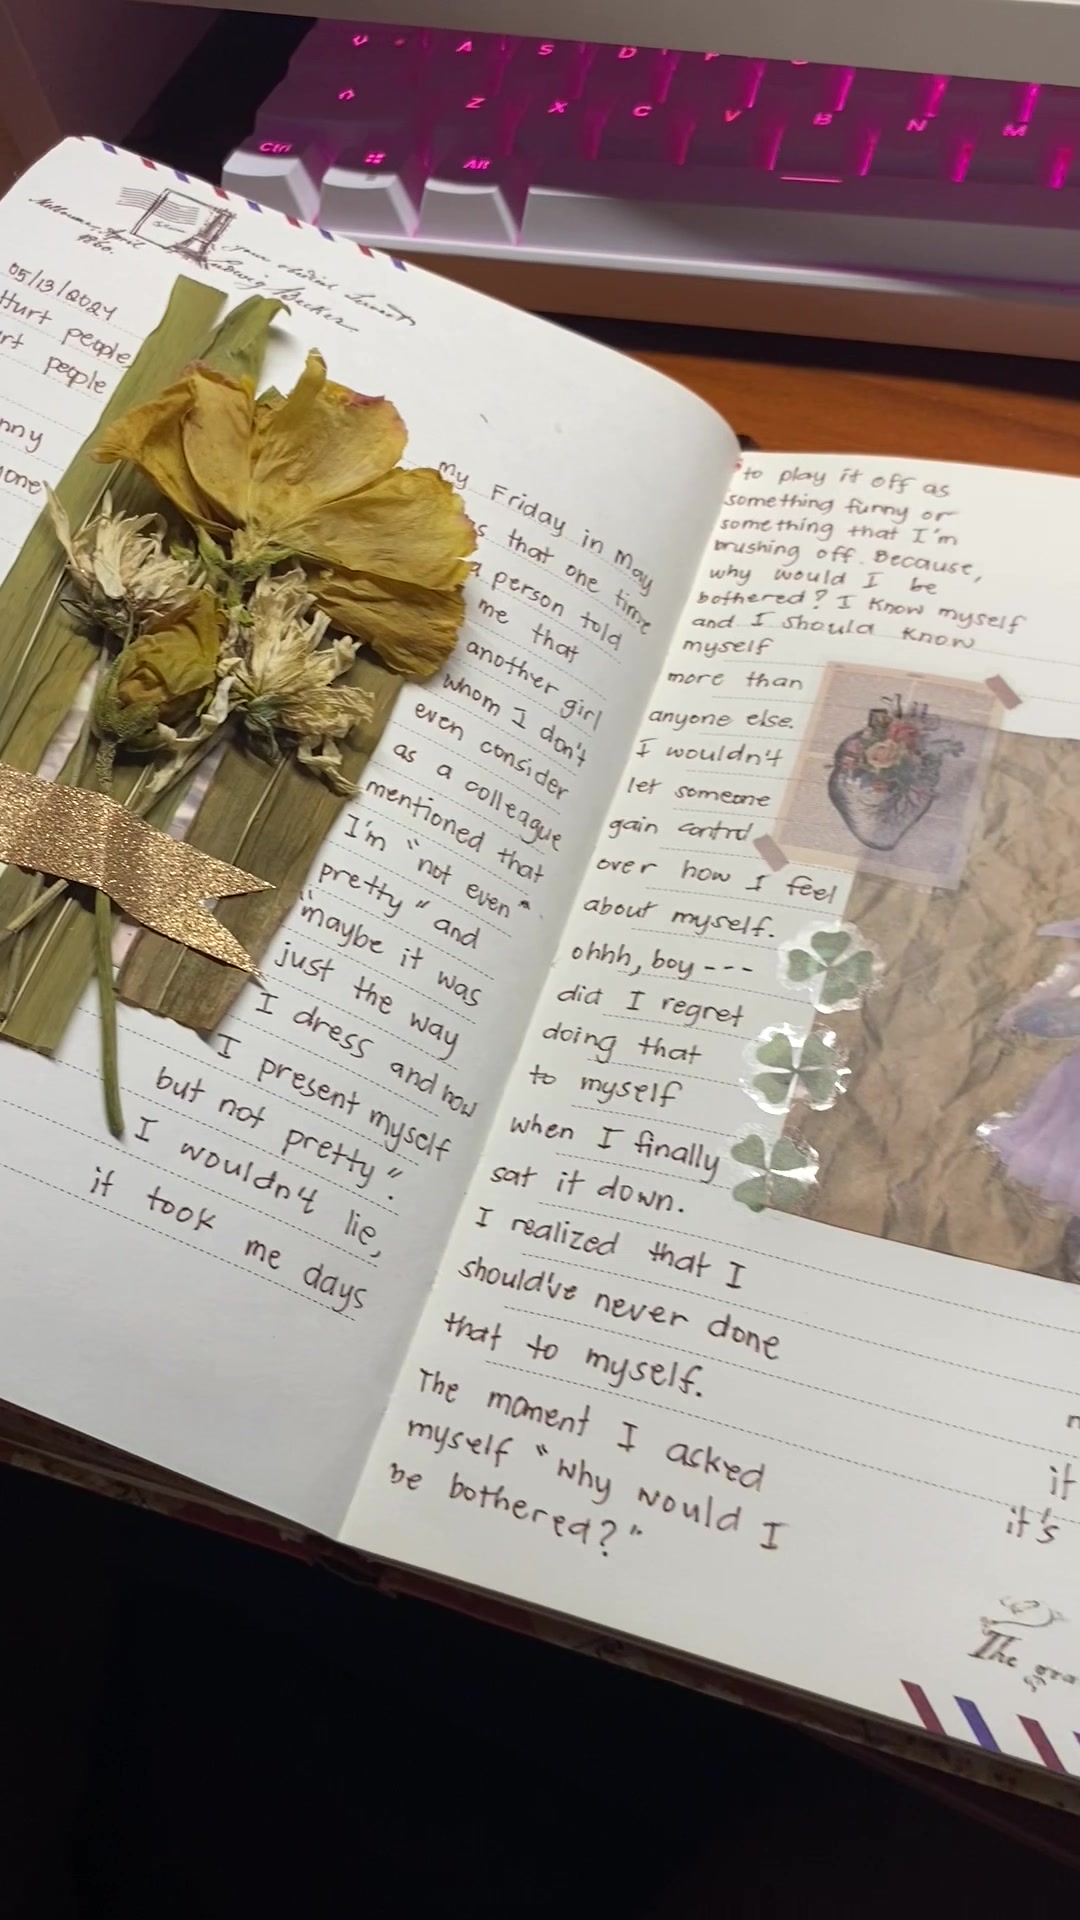 A S D
Z X C V B N M
Ctrl Alt
05/13/2024
Hurt people,
people
my Friday in May
that one time
a person told
me that
another girl
whom I don't
even consider
as a colleague
mentioned that
I'm "not even"
pretty" and
"maybe it was
just the way
I dress and how
I present myself
but not pretty".
I wouldn't lie,
it took me days
to play it off as
something funny or
something that I'm
brushing off. Because,
why would I be
bothered? I know myself
and I should know
myself
more than
anyone else.
I wouldn't
let someone
gain control
over how I feel
about myself.
ohhh, boy ---
did I regret
doing that
to myself
when I finally
sat it down.
I realized that I
should've never done
that to myself.
The moment I asked
myself "why would I
be bothered?"
it
it's
The